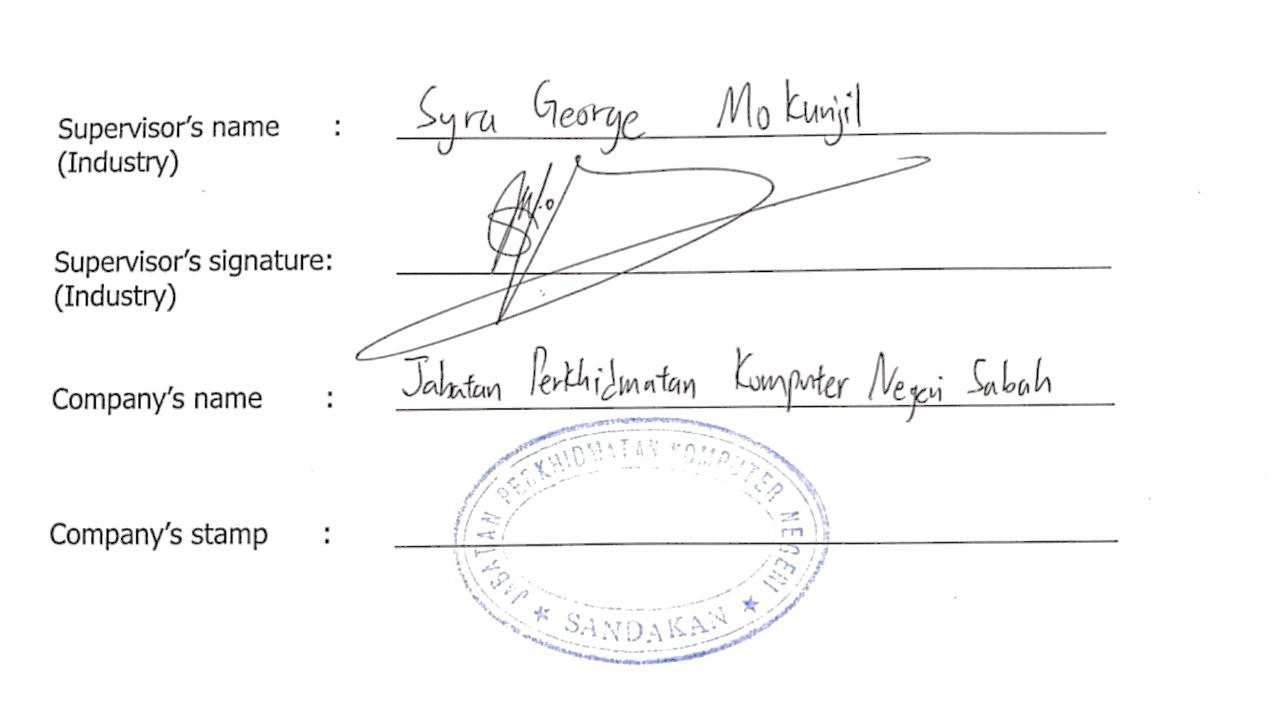 Supervisor's name : Syra George Mokunjil
(Industry)
Supervisor's signature:
(Industry)
Company's name : Jabatan Perkhidmatan Komputer Negeri Sabah
Company's stamp :
JABATAN PERKHIDMATAN KOMPUTER NEGERI
★ SANDAKAN ★